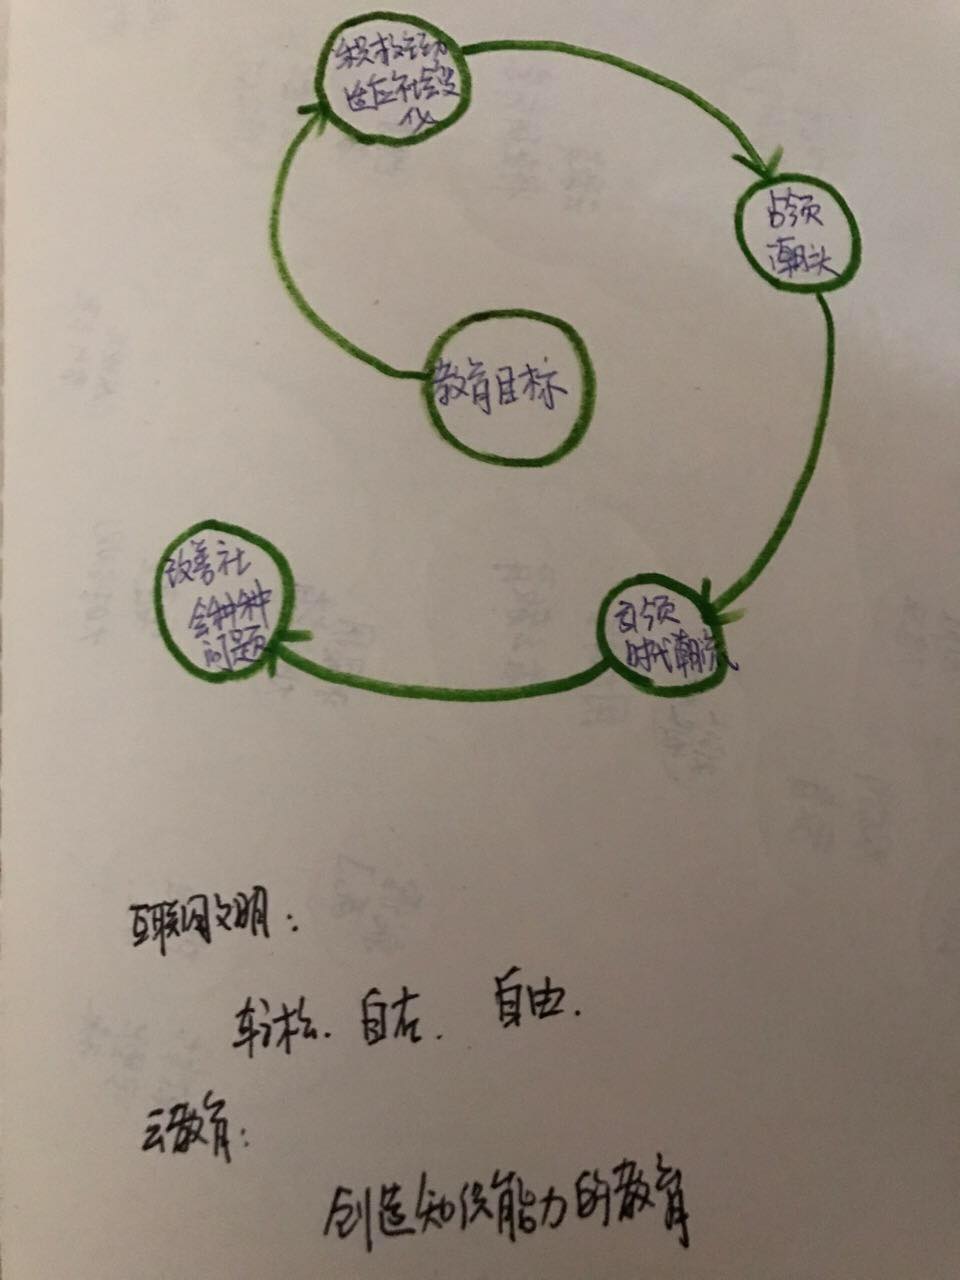 积极主动
适应社会变
化
占领
潮头
教育目标
引领
时代潮流
改善社
会种种
问题
互联网文明：
轻松．自在．自由．
云教育：
创造知识能力的教育